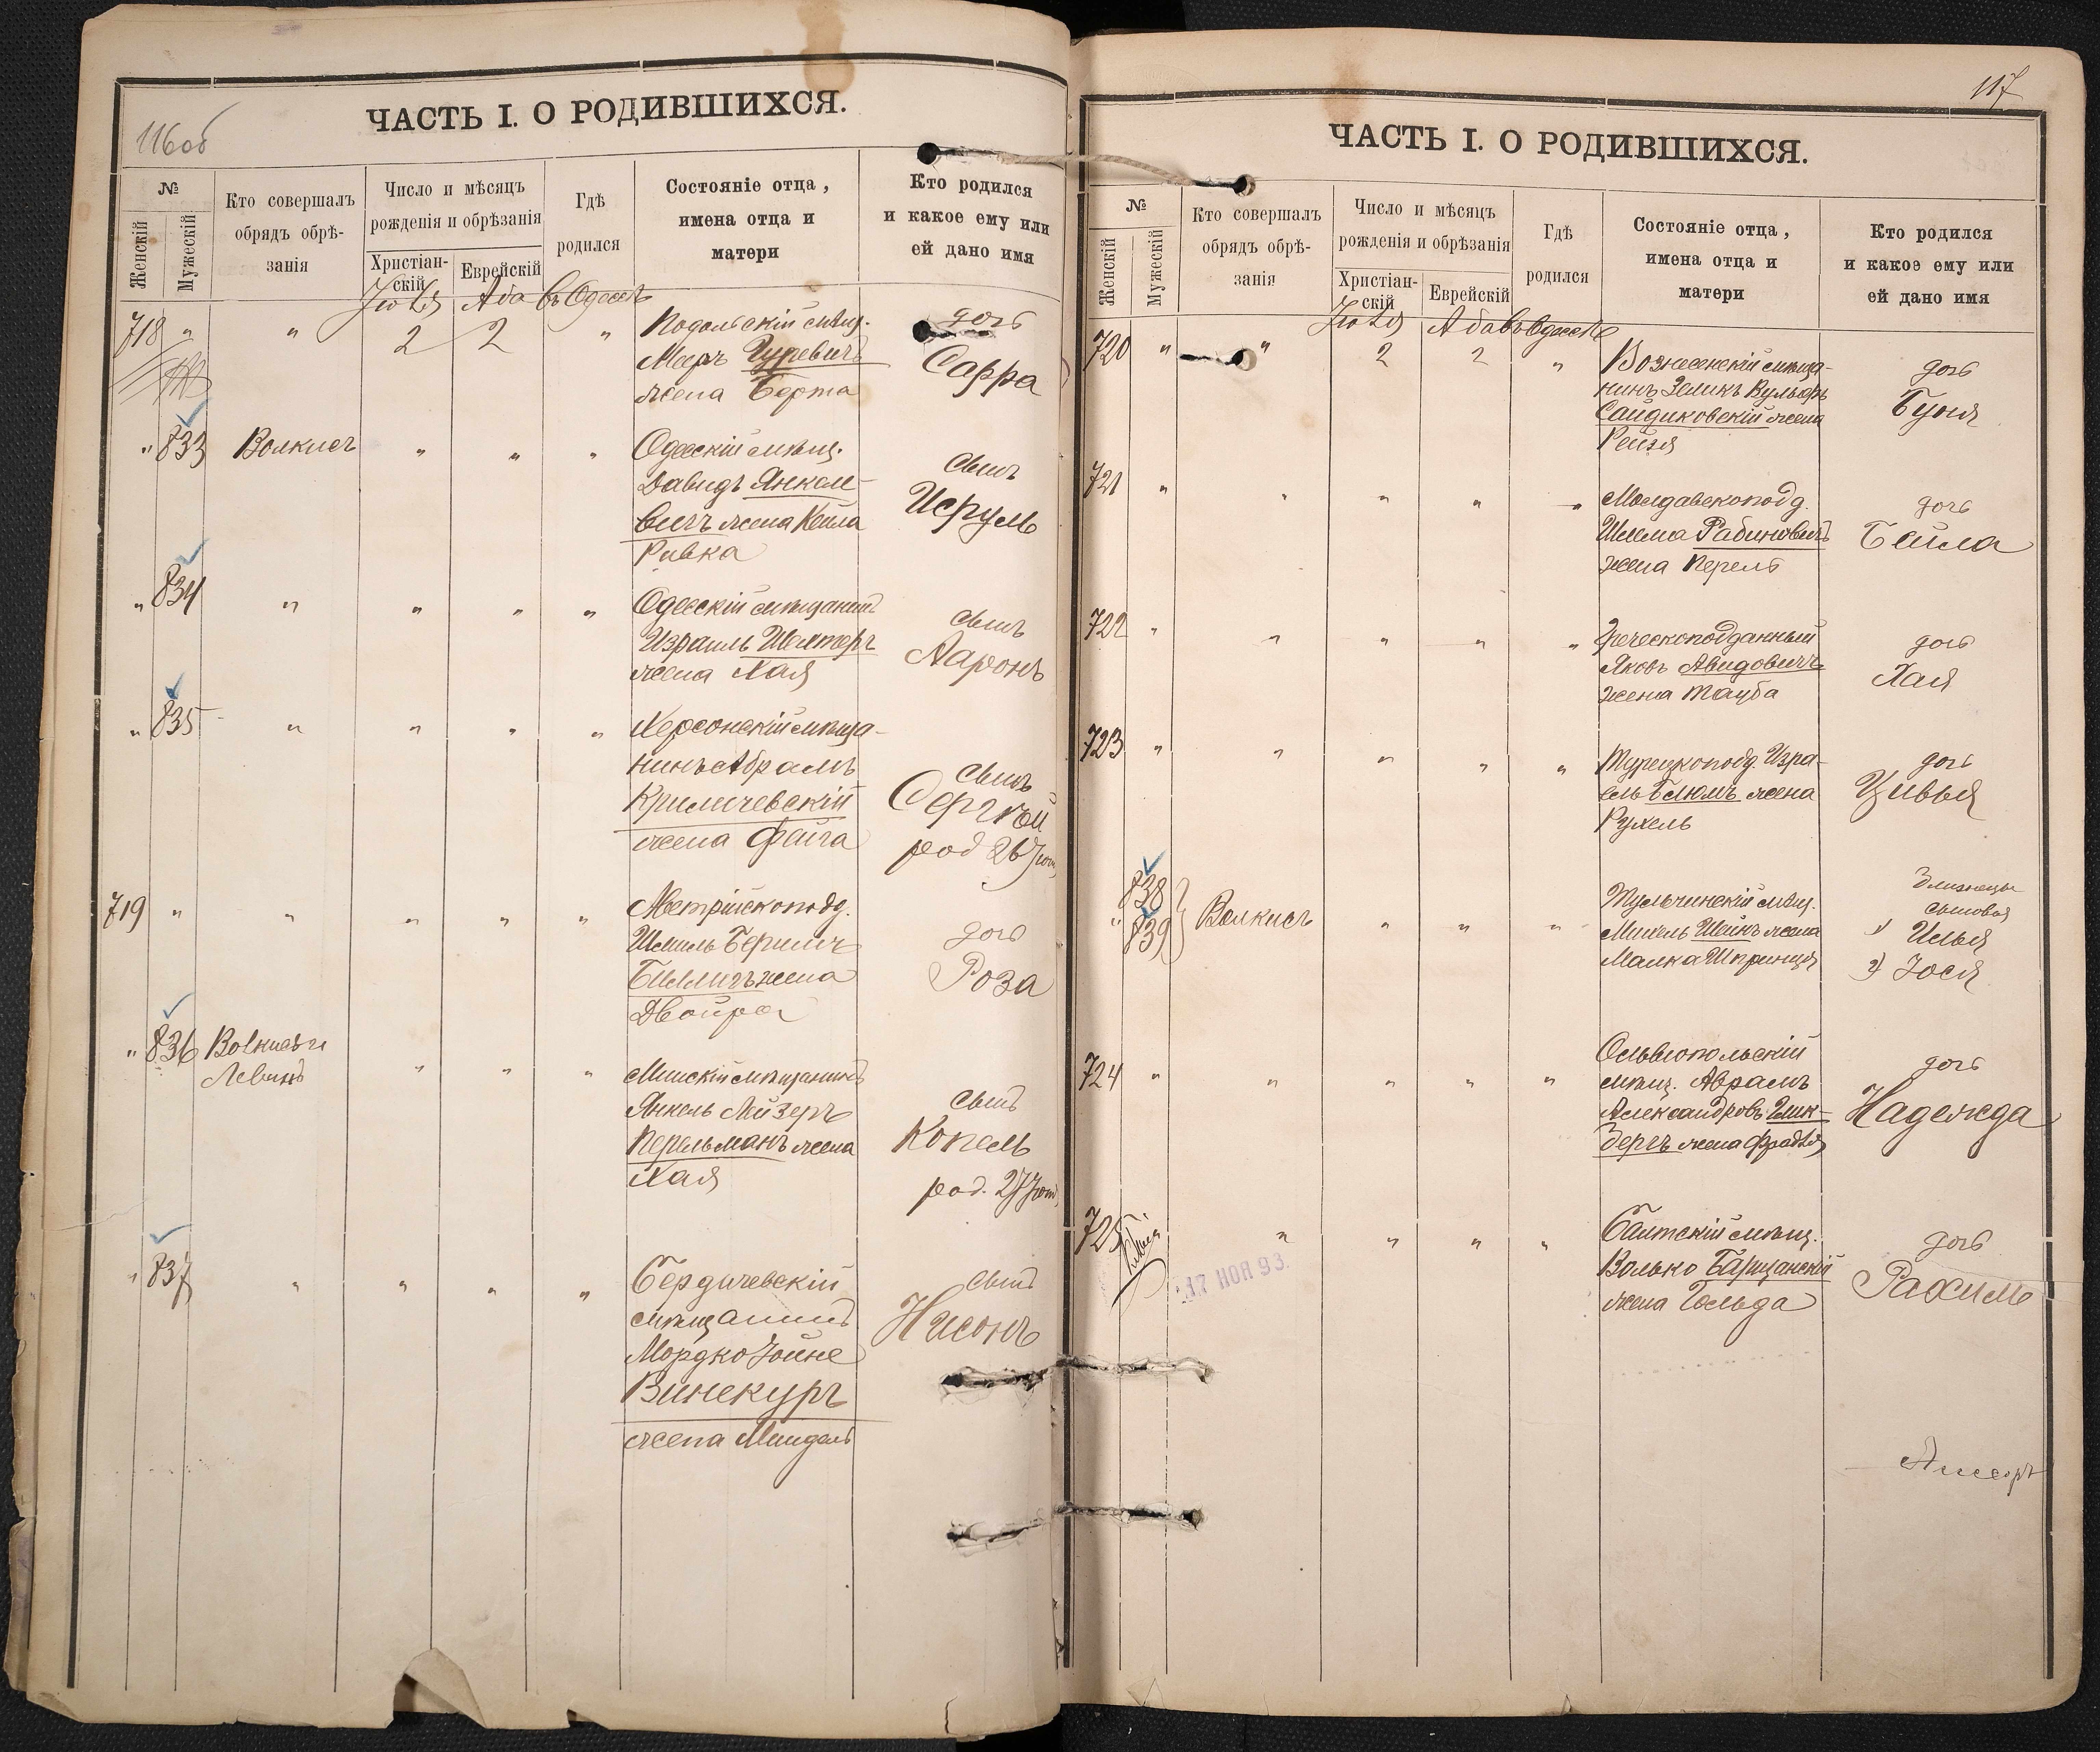 116об
ЧАСТЬ I. О РОДИВШИХСЯ.
№
Женскій
Мужескій
Кто совершалъ
обрядъ обрѣ-
занія
Число и мѣсяцъ
рожденія и обрѣзанія
Христіан-
скій
Еврейскій
Гдѣ
родился
Состояніе отца,
имена отца и
матери
Кто родился
и какое ему или
ей дано имя
Іюля Аба въ Одессѣ
718 " " 2 2 "
Подольскій мѣщ.
Мееръ Гуревичъ
жена Берта
дочь
Сарра
" 833 Волкисъ " " "
Одесскій мѣщ.
Давидъ Янкеле-
вичъ жена Кейла
Ривка
сынъ
Исруль
" 834 " " " "
Одесскій мѣщанинъ
Израиль Шехтеръ
жена Хая
сынъ
Ааронъ
" 835 " " " "
Херсонскій мѣща-
нинъ Абрамъ
Криличевскій
жена Фейга
сынъ
Сергѣй
род 26 Іюн
719 " " " " "
Австрійскопод.
Шмиль Беришъ
жена
Двойра
дочь
Роза
" 836 Волкисъ и
Левинъ
" " "
Минскій мѣщанинъ
Янкель Лейзеръ
Перельманъ жена
Хая
сынъ
Копель
род. 27 Іюн
" 837 " " " "
Бердичевскій
мѣщанинъ
Мордко Іойне
Винекуръ
жена Миндель
сынъ
Нисонъ
117
ЧАСТЬ I. О РОДИВШИХСЯ.
№
Женскій
Мужескій
Кто совершалъ
обрядъ обрѣ-
занія
Число и мѣсяцъ
рожденія и обрѣзанія
Христіан-
скій
Еврейскій
Гдѣ
родился
Состояніе отца,
имена отца и
матери
Кто родился
и какое ему или
ей дано имя
Іюля Аба въ Одессѣ
720 " " 2 2 "
Вознесенскій мѣща-
нинъ Зеликъ Вульфъ
Сандиковскій жена
Рейзя
дочь
Буня
721 " " " " "
Молдавскопод.
Шлема Рабиновичъ
жена Перель
дочь
Бейла
722 " " " " "
Греческоподданный
Яковъ Авидовичъ
жена Тауба
дочь
Хая
723 " " " " "
Турецкопод. Изра-
ель Блюмъ жена
Рухель
дочь
Цивья
838
" 839 Волкисъ " " "
Тульчинскій мѣщ.
Михель Шейнъ жена
Малка Шпринця
Близнецы
сыновья
1) Илья
2) Іося
724 " " " " "
Ольвіопольскій
мѣщ. Абрамъ
Александровъ Гинз-
бергъ жена Фрадля
дочь
Надежда
725 " " " "
17 НОЯ 93.
Балтскій мѣщ.
Волько Барщанскій
жена Гольда
дочь
Рахиль